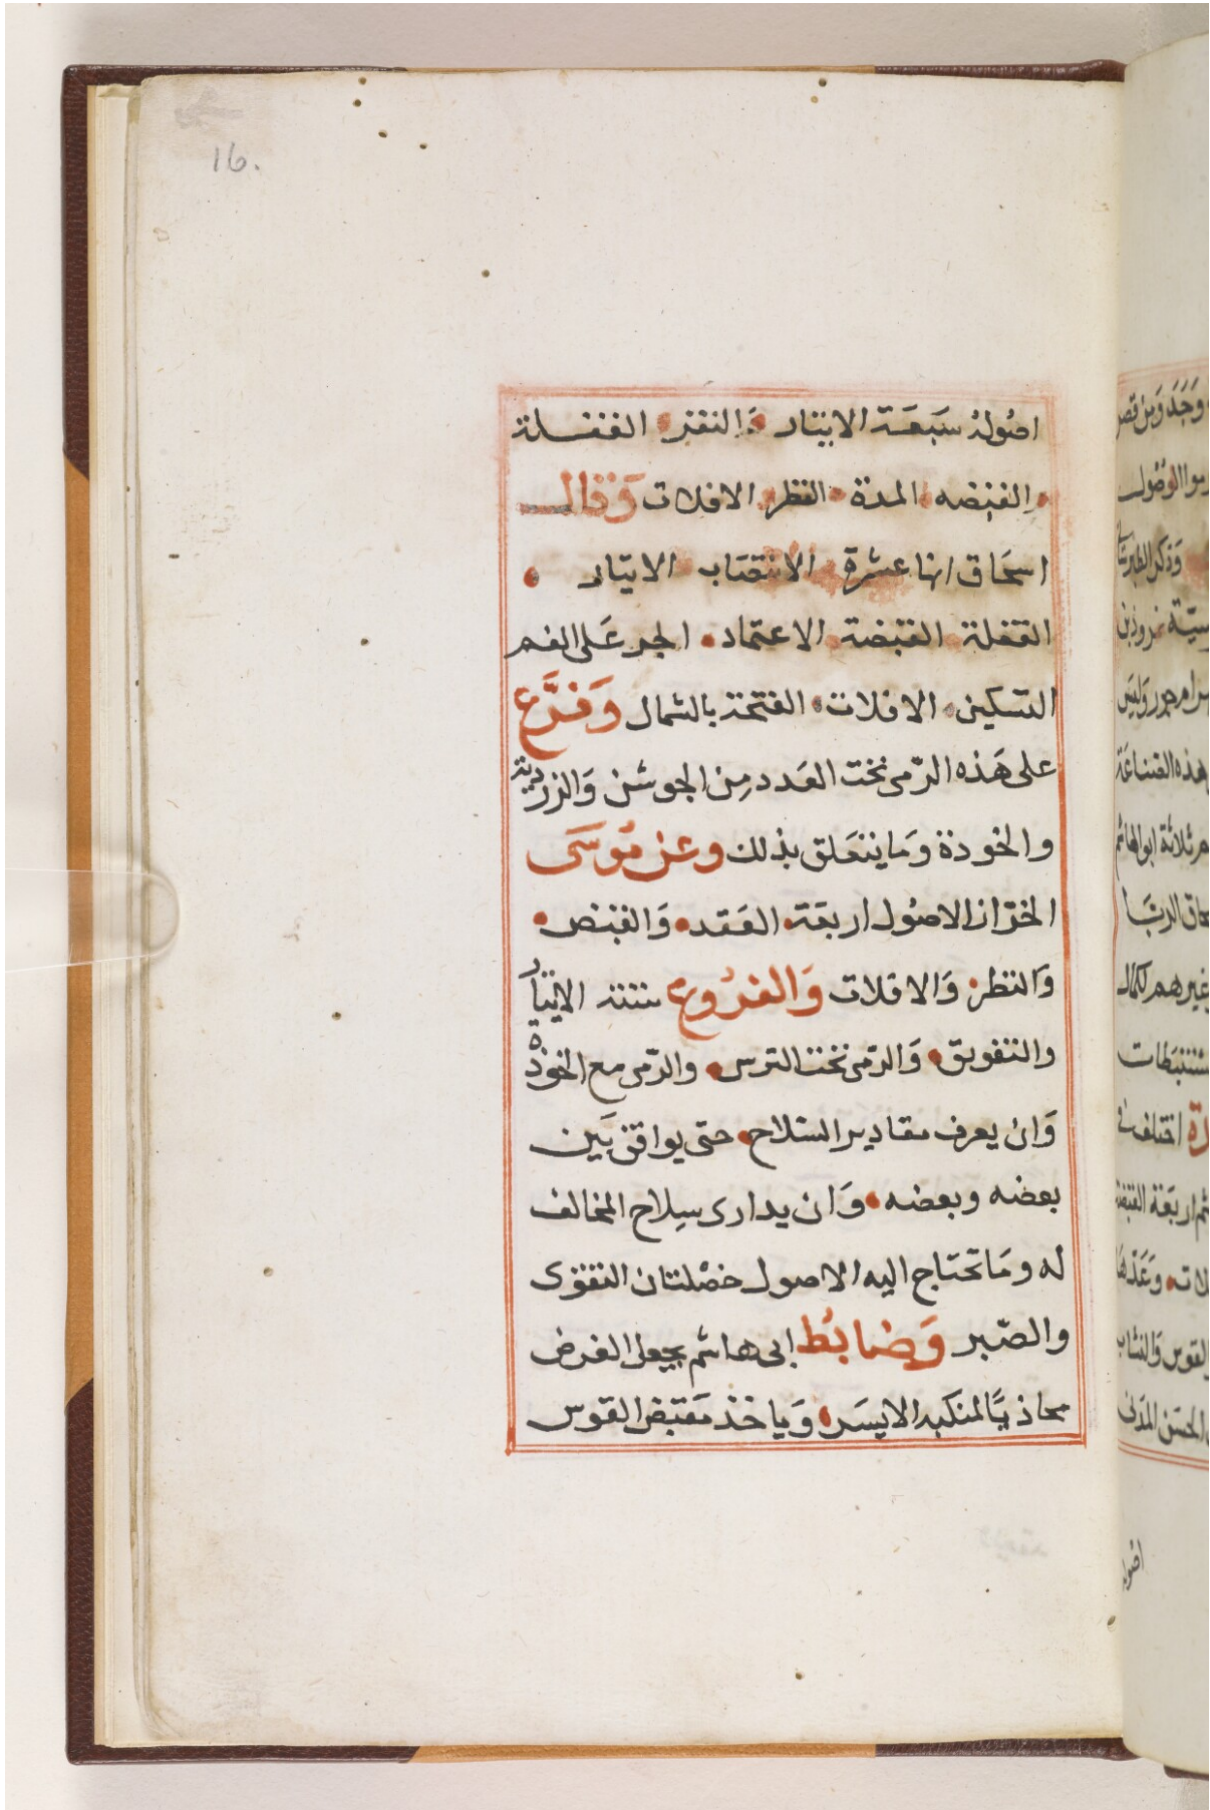 16.
اصُولهُ سَبعَة الايتار • وَالنقز • القفلة
• القبضه • المدة • النظر • الافلات وَقال
اسحَاق انها عشرة • الانتصَاب • الايتار •
القفلة • القبضة • الاعتماد • الجر عَلى الفم
التسكين • الافلات • الفتحة بالشمال وَفرَّع
على هَذه الرّمى تحت العَدد مِن الجوشن وَالزردية
والخوذة وَما يتعَلق بذلك وعن مُوسَى
الخرّاز الاصُول اربعَة • العَقد • وَالقبض •
وَالنظر • وَالافلات وَالفرُوع ستة الايتار
والتفويق • وَالرّمى تحت الترس • والرّمى مع الخوذة
وَان يعرف مقادير السّلاح • حتى يوافق بَين
بعضه وبعضه • وَان يدارى سِلاح المخالف
له ومَا تحتَاج اليه الاصول خصْلتان التقوى
والصّبر وَضابُط ابى هاشم يجعل الغرض
محاذيًا لمنكبه الايسَر • وَياخذ مَقبض القوس